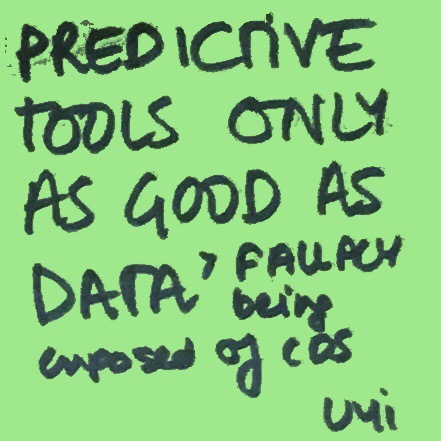 PREDICTIVE
TOOLS ONLY
AS GOOD AS
DATA > FALLACY
being
imposed of CDS